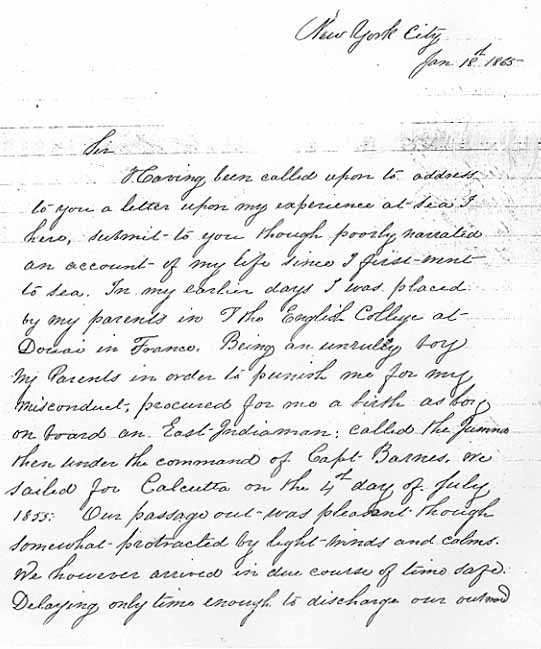 New York City
Jan 18th 1865
Sir
Having been called upon to address
to you a letter upon my experience at sea I
here, submit to you though poorly narrated
an account of my life since I first went
to sea. In my earlier days I was placed
by my parents in The English College at
Douai in France. Being an unruly boy
My Parents in order to punish me for my
misconduct, procured for me a birth as boy
on board an East Indiaman; called the Jumna
then under the command of Capt Barnes. We
sailed for Calcutta on the 4th day of July
1855. Our passage out was pleasant though
somewhat protracted by light winds and calms.
We however arrived in due course of time safe.
Delaying only time enough to discharge our outward